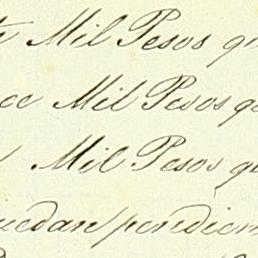 Mil Pesos qu
ce Mil Pesos qu
Mil Pesos qu
uedan pendien